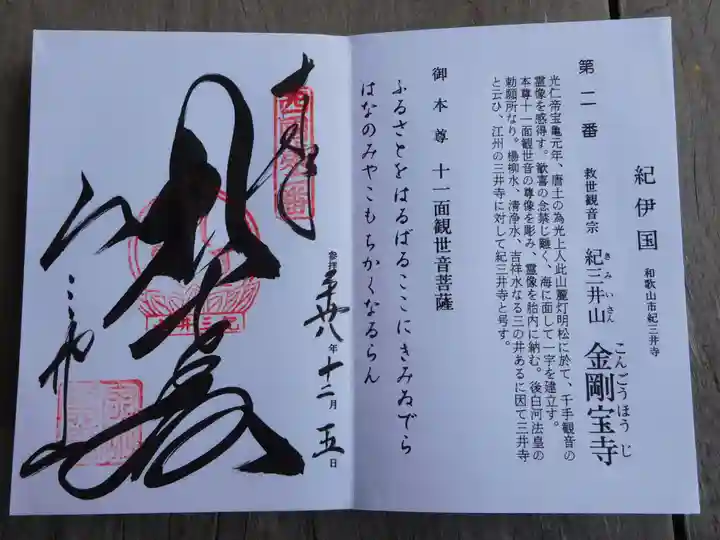 紀伊国 和歌山市紀三井寺
第二番 救世観音宗 紀三井山 金剛宝寺
きみいさん こんごうほうじ
光仁帝宝亀元年、唐土の為光上人此山麓灯明松に於て、千手観音の
霊像を感得す。歓喜の念禁じ難く、海に面して一宇を建立す。
本尊十一面観世音の尊像を彫み、霊像を胎内に納む。後白河法皇の
勅願所なり。楊柳水、清浄水、吉祥水なる三の井あるに因て三井寺
と云ひ、江州の三井寺に対して紀三井寺と号す。
御本尊 十一面観世音菩薩
ふるさとをはるばるここにきみゐでら
はなのみやこもちかくなるらん
参拝 年 十二月 五日